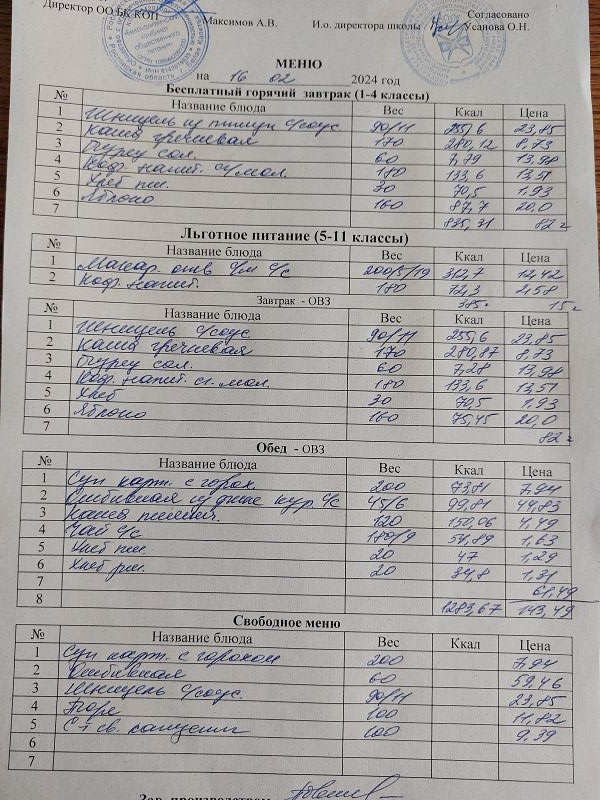 Директор ООО БК КОП Максимов А.В. И.о. директора школы Усанова О.Н.
Согласовано
МЕНЮ
на 16 02 2024 год
Бесплатный горячий завтрак (1-4 классы)
№ Название блюда Вес Ккал Цена
1 Шницель из птицы с/соус 90/11 255,6 23,85
2 каша гречневая 170 280,12 8,73
3 Огурец сол. 60 7,79 13,98
4 Коф. напит. с/мол. 180 133,6 13,51
5 Хлеб пш. 30 70,5 1,93
6 Яблоко 160 87,7 20,0
7 835,31 82
Льготное питание (5-11 классы)
№ Название блюда Вес Ккал Цена
1 Макар. отв с/м с/с 200/5/19 312,7 12,42
2 Коф. напит. 180 72,3 2,58
385 15
Завтрак - ОВЗ
№ Название блюда Вес Ккал Цена
1 Шницель с/соус 90/11 255,6 23,85
2 каша гречневая 170 280,87 8,73
3 Огурец сол. 60 7,28 13,98
4 Коф. напит. сг. мол. 180 133,6 13,51
5 Хлеб 30 70,5 1,93
6 Яблоко 160 75,45 20,0
7 82
Обед - ОВЗ
№ Название блюда Вес Ккал Цена
1 Суп карт. с горох. 200 73,81 7,94
2 Отбивная из филе кур. с/с 45/6 99,81 44,83
3 каша пшенич. 120 150,06 4,49
4 Чай с/с 180/9 54,89 1,63
5 Хлеб пш. 20 47 1,29
6 Хлеб рж. 20 34,8 1,31
7 61,49
8 1283,67 143,49
Свободное меню
№ Название блюда Вес Ккал Цена
1 Суп карт. с горохом 200 7,94
2 Отбивная 60 59,46
3 Шницель с/соус. 90/11 23,85
4 Пюре 100 11,82
5 С-т св. капусты 100 9,39
6
7
Зав. производством